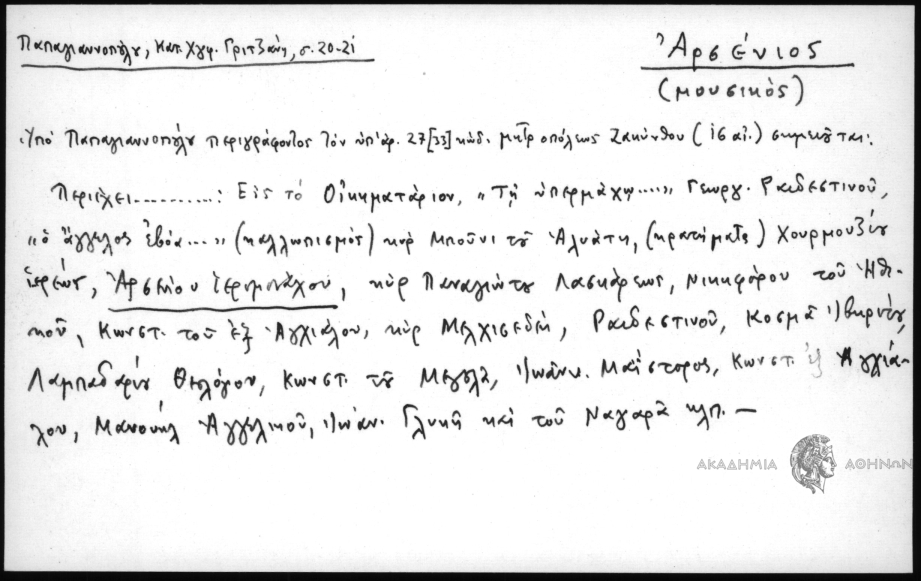 Παπαγιαννοπούλου, Κατ. Χγφ. Γριτσάνη, σ. 20-21
Ἀρσένιος
(μουσικός)
Ὑπὸ Παπαγιαννοπούλου περιγράφοντος τὸν ὑπ' ἀρ. 27[33] κώδ. μητροπόλεως Ζακύνθου (ις αἰ.) σημειοῦται:
Περιέχει..........: Εἰς τὸ Οἰκηματάριον, "Τῇ ὑπερμάχῳ...." Γεωργ. Ραιδεστινοῦ,
"ὁ ἄγγελος ἐβόα..." (καλλωπισμὸς) κὺρ Μπούνι τοῦ Ἀλυάτη, (κρατήματα) Χουρμουζίου
ἱερέως, Ἀρσενίου ἱερομονάχου, κὺρ Παναγιώτου Λασκάρεως, Νικηφόρου τοῦ Ἠθι-
κοῦ, Κωνστ. τοῦ ἐξ Ἀγχιάλου, κὺρ Μελχισεδέκ, Ραιδεστινοῦ, Κοσμᾶ Ἰβηρίτου,
Λαμπαδαρίου, Θεολόγου, Κωνστ. τοῦ Μαγουλᾶ, Ἰωάνν. Μαΐστορος, Κωνστ. ἐξ Ἀγχιά-
λου, Μανουὴλ Ἀγγελικοῦ, Ἰωάν. Γλυκῆ καὶ τοῦ Ναγαρᾶ κλπ. —
ΑΚΑΔΗΜΙΑ ΑΘΗΝΩΝ